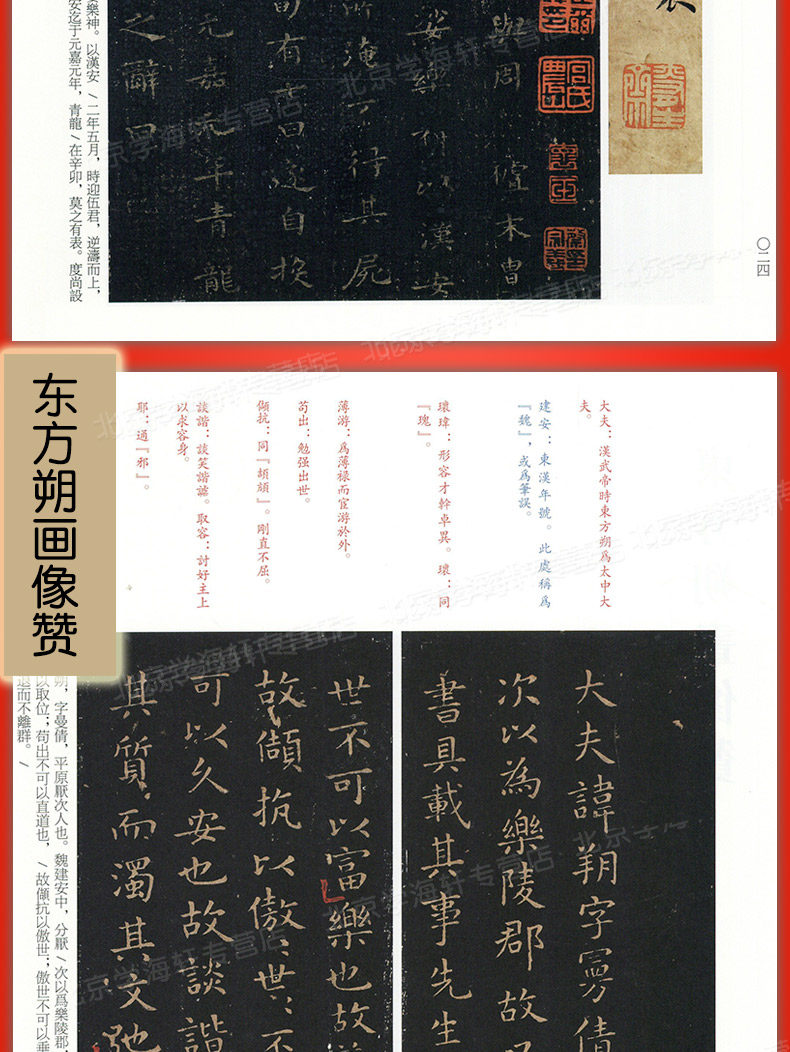 與周
盤末曹
娑樂神以漢安
所淹不得其屍
旬有七日遂自投
元嘉元年青龍
之辭曰
〇二四
樂神。以漢安 \ 二年五月，時迎伍君，逆濤而上，
安迄于元嘉元年，青龍 \ 在辛卯，莫之有表。度尚設
东方朔画像赞
大夫：漢武帝時東方朔爲太中大
夫。
建安：東漢年號。此處稱爲
『魏』，或爲筆誤。
瓌瑋：形容才幹卓異。瓌：同
『瑰』。
薄游：爲薄禄而宦游於外。
苟出：勉强出世。
傾抗：同『頡頏』。剛直不屈。
談諧：談笑諧謔。取容：討好主上
以求容身。
耶：通『邪』。
大夫諱朔字曼倩
次以為樂陵郡故
書具載其事先生
世不可以富樂也故
故傾抗以傲世世不
可以久安也故談諧
其質而濁其文弛
朔，字曼倩，平原厭次人也。魏建安中，分厭 \ 次以爲樂陵郡，
以取位；苟出不可以直道也， \ 故傾抗以傲世；傲世不可以垂
退而不離群。 \
北京学海轩专营店